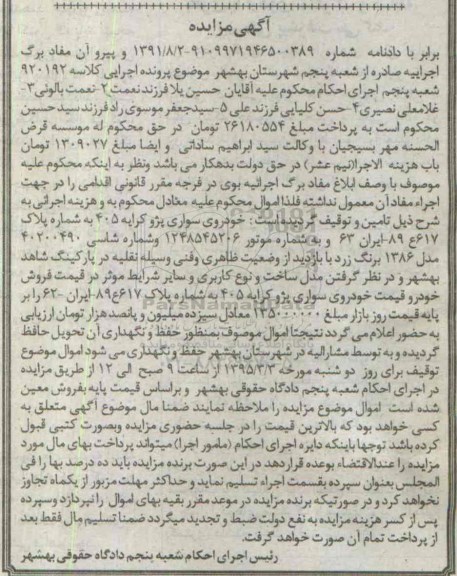 آگهی مزایده
برابر با دادنامه شماره ۹۱۰۹۹۷۱۹۴۶۵۰۰۳۸۹-۱۳۹۱/۸/۲ و پیرو آن مفاد برگ
اجراییه صادره از شعبه پنجم شهرستان بهشهر موضوع پرونده اجرایی کلاسه ۹۲۰۱۹۲
شعبه پنجم اجرای احکام محکوم علیه آقایان حسین یلا فرزند نعمت ۲-نعمت بالونی ۳-
غلامعلی نصیری ۴-حسن کلبایی فرزند علی ۵-سیدجعفر موسوی راد فرزند سید حسین
محکوم است به پرداخت مبلغ ۲۶۱۸۰۵۵۴ تومان در حق محکوم له موسسه قرض
الحسنه مهر بسیجیان با وکالت سید ابراهیم ساداتی و ایضا مبلغ ۱۳۰۹۰۲۷ تومان
باب هزینه الاجرا(نیم عشر) در حق دولت بدهکار می باشد ونظر به اینکه محکوم علیه
موصوف با وصف ابلاغ مفاد برگ اجرائیه بوی در فرجه مقرر قانونی اقدامی را در جهت
اجراء مفاد آن معمول نداشته فلذا اموال محکوم علیه معادل محکوم به و هزینه اجرائی به
شرح ذیل تامین و توقیف گردیده است: خودروی سواری پژو کرایه ۴۰۵ به شماره پلاک
۶۱۷ع ۸۹-ایران ۶۳ و به شماره موتور ۱۲۴۸۵۴۵۲۰۶ وشماره شاسی ۴۰۲۰۰۴۹۰
مدل ۱۳۸۶ برنگ زرد با بازدید از وضعیت ظاهری وفنی وسیله نقلیه در پارکینگ شاهد
بهشهر و در نظر گرفتن مدل ساخت و نوع کاربری و سایر شرایط موثر در قیمت فروش
خودرو قیمت خودروی سواری پژو کرایه ۴۰۵ به شماره پلاک ۶۱۷ع۸۹-ایران ۶۲ را بر
پایه قیمت روز بازار مبلغ ۱۳۵۰۰۰۰۰۰ معادل سیزده میلیون و پانصدهزار تومان ارزیابی
به حضور اعلام می گردد نتیجتا اموال موصوف بمنظور حفظ و نگهداری آن تحویل حافظ
گردیده و به توسط مشارالیه در شهرستان بهشهر حفظ و نگهداری می شود اموال موضوع
توقیف برای روز دو شنبه مورخه ۱۳۹۵/۳/۳ از ساعت ۹ صبح الی ۱۲ از طریق مزایده
در اجرای احکام شعبه پنجم دادگاه حقوقی بهشهر و براساس قیمت پایه بفروش معین
شده است اموال موضوع مزایده را ملاحظه نمایند ضمنا مال موضوع آگهی متعلق به
کسی خواهد بود که بالاترین قیمت را در جلسه حضوری مزایده وبصورت کتبی قبول
کرده باشد توجها باینکه دایره اجرای احکام (مامور اجرا) میتواند پرداخت بهای مال مورد
مزایده را عندالاقتضاء بوعده قرار دهد در این صورت برنده مزایده باید ده درصد بها را فی
المجلس بعنوان سپرده بقسمت اجراء تسلیم نماید و حداکثر مهلت مزبور از یکماه تجاوز
نخواهد کرد و در صورتیکه برنده مزایده در موعد مقرر بقیه بهای اموال را نپردازد وسپرده
پس از کسر هزینه مزایده به نفع دولت ضبط و تجدید میگردد ضمنا تسلیم مال فقط بعد
از پرداخت تمام آن صورت خواهد گرفت.
رئیس اجرای احکام شعبه پنجم دادگاه حقوقی بهشهر